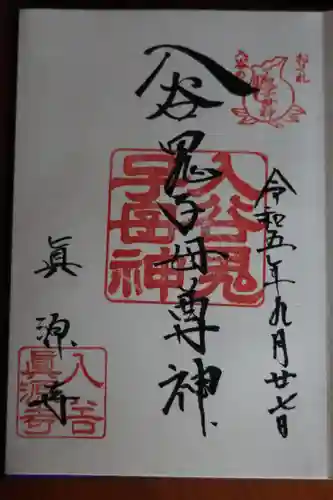 令和五年九月廿七日
入谷鬼子母尊神
入谷鬼
子母神
眞源寺
入谷
眞源寺